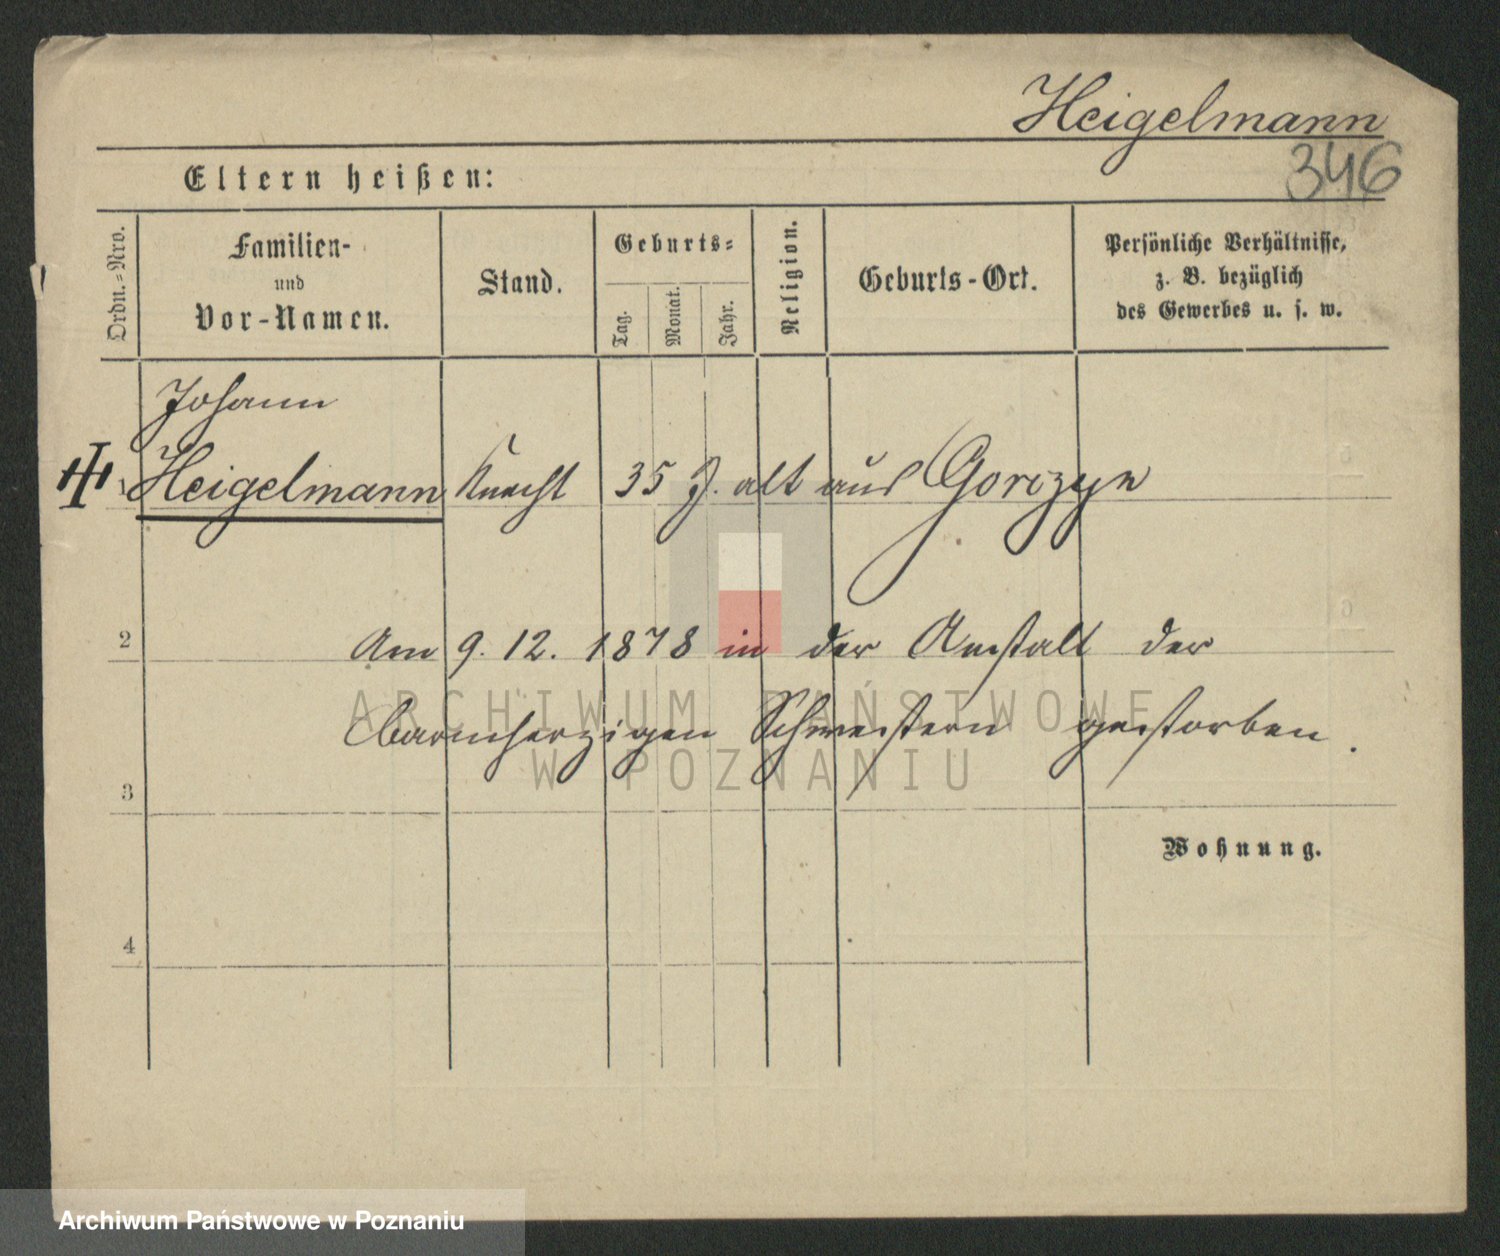 Heigelmann
346
Eltern heißen:
Ordn.-Nro.
Familien-
und
Vor-Namen.
Stand.
Geburts-
Tag.
Monat.
Jahr.
Religion.
Geburts-Ort.
Persönliche Verhältnisse,
z. B. bezüglich
des Gewerbes u. s. w.
Johann
1 Heigelmann Knecht 35 J. alt aus Gorczyn
2
Am 9. 12. 1878 in der Anstalt der
barmherzigen Schwestern gestorben.
3
Wohnung.
4
ARCHIWUM PAŃSTWOWE
W POZNANIU
Archiwum Państwowe w Poznaniu